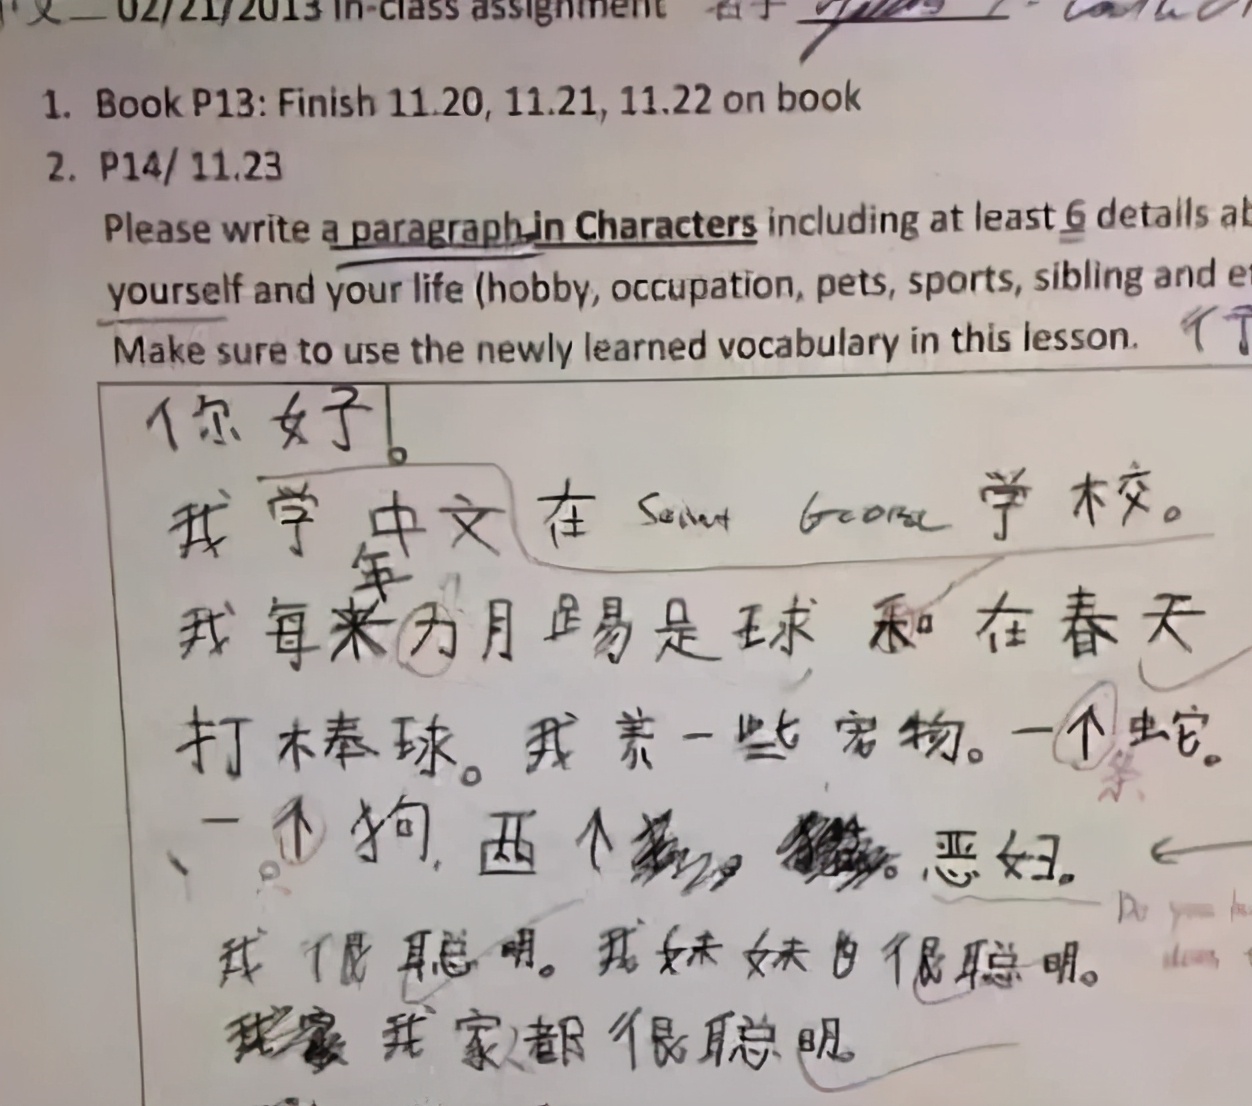 02/21/2013 in-class assignment 名字
1. Book P13: Finish 11.20, 11.21, 11.22 on book
2. P14/ 11.23
Please write a paragraph in Characters including at least 6 details
yourself and your life (hobby, occupation, pets, sports, sibling and
Make sure to use the newly learned vocabulary in this lesson.
你好。
我学中文在 George 学校。
年
我每来为月踢足球和在春天
打棒球。我养一些宠物。一个蛇。
条
一个狗, 两个 恶妇。
Do you
我很聪明。我妹妹也很聪明。
我家 我家都很聪明。